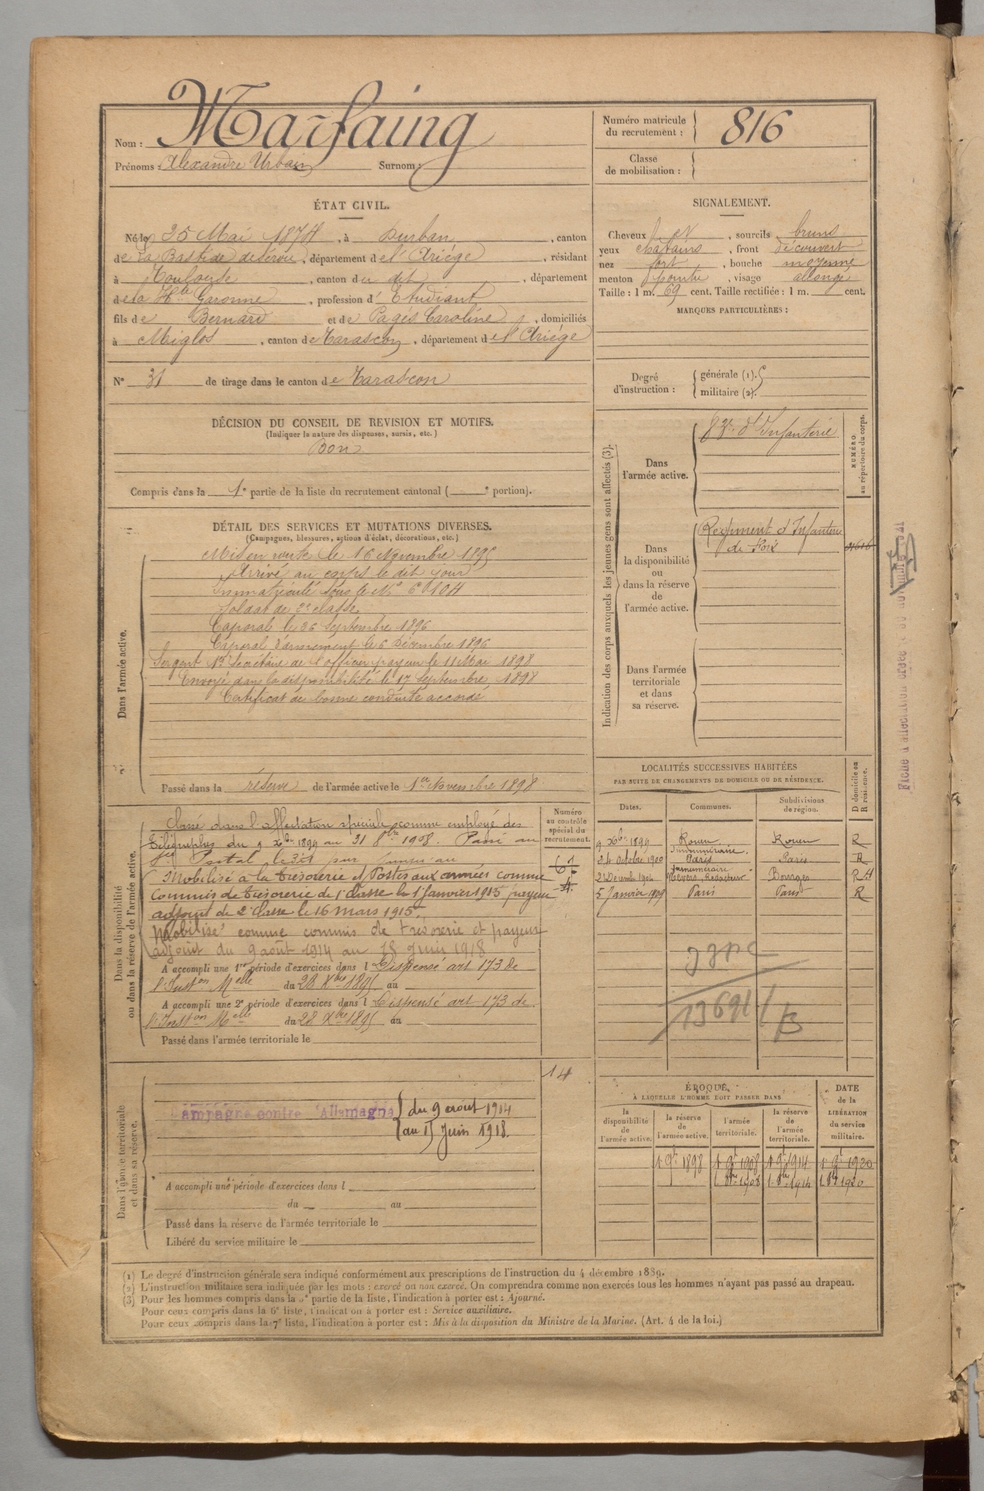 Nom : Marfaing
Prénoms : Alexandre Urbain Surnom :
Numéro matricule du recrutement : 816
Classe de mobilisation :
ÉTAT CIVIL.
Né le 25 Mai 1874, à Durban, canton
de La Bastide de Sérou, département de l'Ariége, résidant
à Toulouse, canton du dit, département
de la Hte Garonne, profession d'Etudiant
fils de Bernard et de Pagès Caroline, domiciliés
à Miglos, canton de Tarascon, département de l'Ariége
N° 31 de tirage dans le canton de Tarascon
SIGNALEMENT.
Cheveux , sourcils bruns
yeux chatains, front découvert
nez fort, bouche moyenne
menton pointu, visage allongé
Taille : 1 m. 69 cent. Taille rectifiée : 1 m. cent.
MARQUES PARTICULIÈRES :
Degré d'instruction : générale (1).
militaire (2).
DÉCISION DU CONSEIL DE REVISION ET MOTIFS.
(Indiquer la nature des dispenses, sursis, etc.)
Bon
Compris dans la 1e partie de la liste du recrutement cantonal ( e portion).
DÉTAIL DES SERVICES ET MUTATIONS DIVERSES.
(Campagnes, blessures, actions d'éclat, décorations, etc.)
Dans l'armée active.
Mis en route le 16 Novembre 1895
Arrivé au corps le dit jour
Immatriculé sous le No
Soldat de 2e classe
Caporal le 26 Septembre 1896
Caporal d'armement le 6 Décembre 1896
Sergent 1er Secrétaire de l'officier payeur le 11 Mai 1898
Envoyé dans la disponibilité le 17 Septembre 1898
Certificat de bonne conduite accordé
Passé dans la réserve de l'armée active le 1er Novembre 1898
Indication des corps auxquels les jeunes gens sont affectés (3).
NUMÉRO au répertoire du corps.
Dans l'armée active.
d'Infanterie
Dans la disponibilité ou dans la réserve de l'armée active.
Régiment d'Infanterie
de Foix
Dans l'armée territoriale et dans sa réserve.
Dans la disponibilité ou dans la réserve de l'armée active.
Numéro au contrôle spécial du recrutement.
Classé dans l'affectation spéciale comme employé des
Télégraphes du 9 Xbre 1899 au 31 8bre 1908. Passé au
Mobilisé à la trésorerie et Postes aux armées comme
Commis de trésorerie de 1e Classe le 1 Janvier 1915 payeur
adjoint de 2e Classe le 16 mars 1915.
Mobilisé comme commis de trésorerie et payeur
adjoint du 9 août 1914 au 15 juin 1918
A accompli une 1re période d'exercices dans l Dispensé art 173 de
l'Inston Melle du 28 Xbre 1895 au
A accompli une 2e période d'exercices dans l Dispensé art 173 de
l'Inston Melle du 28 Xbre 1895 au
Passé dans l'armée territoriale le
LOCALITÉS SUCCESSIVES HABITÉES
PAR SUITE DE CHANGEMENTS DE DOMICILE OU DE RÉSIDENCE.
Dates. Communes. Subdivisions de région. D domicile ou R résidence.
9 Xbre 1899 Rouen Rouen R
surnuméraire
24 octobre 1900 Paris Paris R
Nevers, Rédacteur Bourges R
5 Janvier 1909 Paris Paris R
13691
Dans l'armée territoriale et dans sa réserve.
14
Campagne contre l'Allemagne du 9 août 1914
au 15 Juin 1918.
A accompli une période d'exercices dans l
du au
Passé dans la réserve de l'armée territoriale le
Libéré du service militaire le
ÉPOQUE
À LAQUELLE L'HOMME DOIT PASSER DANS
la disponibilité de l'armée active. la réserve de l'armée active. l'armée territoriale. la réserve de l'armée territoriale. DATE de la LIBÉRATION du service militaire.
1 9bre 1898 1 9bre 1908 1 9bre 1914 1 9bre 1920
1 8bre 1908 1 8bre 1914 1 8bre 1920
(1) Le degré d'instruction générale sera indiqué conformément aux prescriptions de l'instruction du 4 décembre 1889.
(2) L'instruction militaire sera indiquée par les mots : exercé ou non exercé. On comprendra comme non exercés tous les hommes n'ayant pas passé au drapeau.
(3) Pour les hommes compris dans la 5e partie de la liste, l'indication à porter est : Ajourné.
Pour ceux compris dans la 6e liste, l'indication à porter est : Service auxiliaire.
Pour ceux compris dans la 7e liste, l'indication à porter est : Mis à la disposition du Ministre de la Marine. (Art. 4 de la loi.)